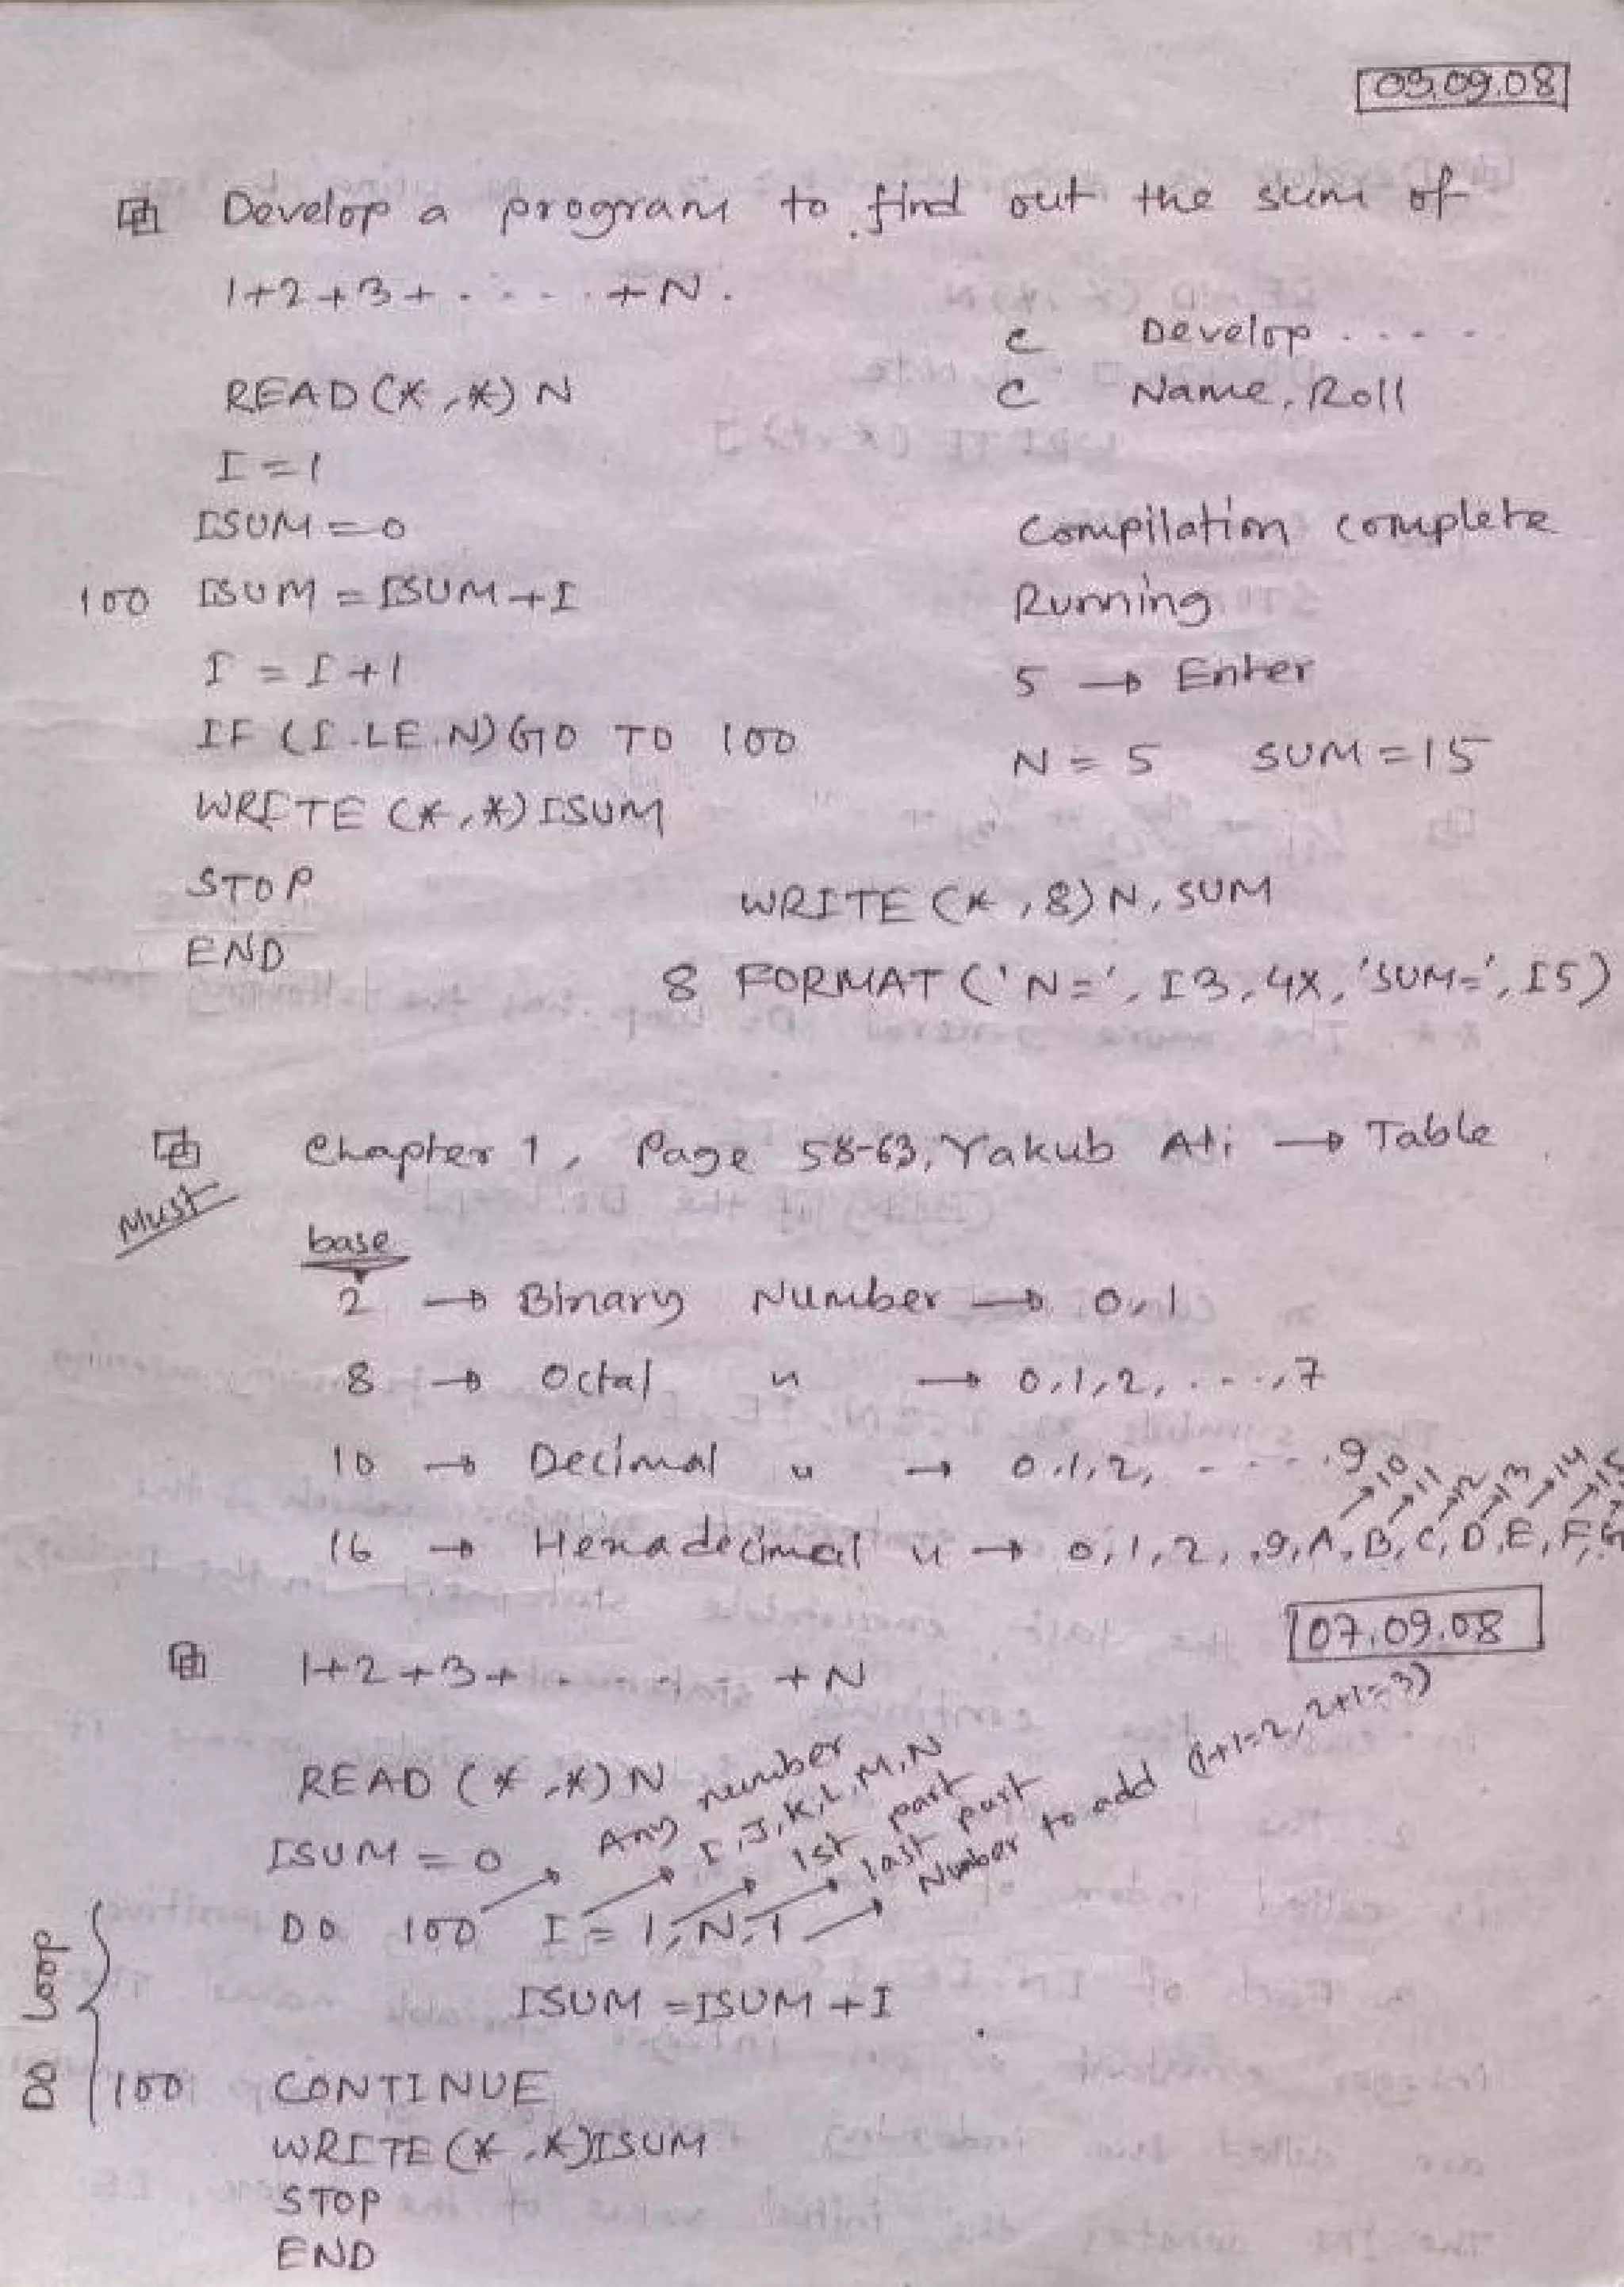 03.09.08
Develop a program to find out the sum of
1+2+3+ . - - . +N.
C Develop . . - -
READ(*,*) N
C Name, Roll
I=1
ISUM=0
Compilation complete
100 ISUM=ISUM+I
Running
I=I+1
5 → Enter
IF (I.LE.N) GO TO 100
N=5 SUM=15
WRITE (*,*) ISUM
STOP
WRITE (*,8) N, SUM
END
8 FORMAT ('N=', I3, 4X, 'SUM=', I5)
Chapter 1, Page 58-63, Yakub Ali → Table
Must
base
2 → Binary Number → 0,1
8 → Octal " → 0,1,2, . - - ,7
10 → Decimal " → 0,1,2, - - - - ,9
→10 →11 →12 →13 →14 →15
16 → Hexadecimal " → 0,1,2, ,9,A,B,C,D,E,F,G
07.09.08
1+2+3+ . . - - +N
READ (*,*) N
Any number
I,J,K,L,M,N
1st part
last part
Number to add (1+1=2, 2+1=3)
ISUM=0
DO 100 I=1,N,1
ISUM=ISUM+I
DO Loop
100 CONTINUE
WRITE(*,*)ISUM
STOP
END